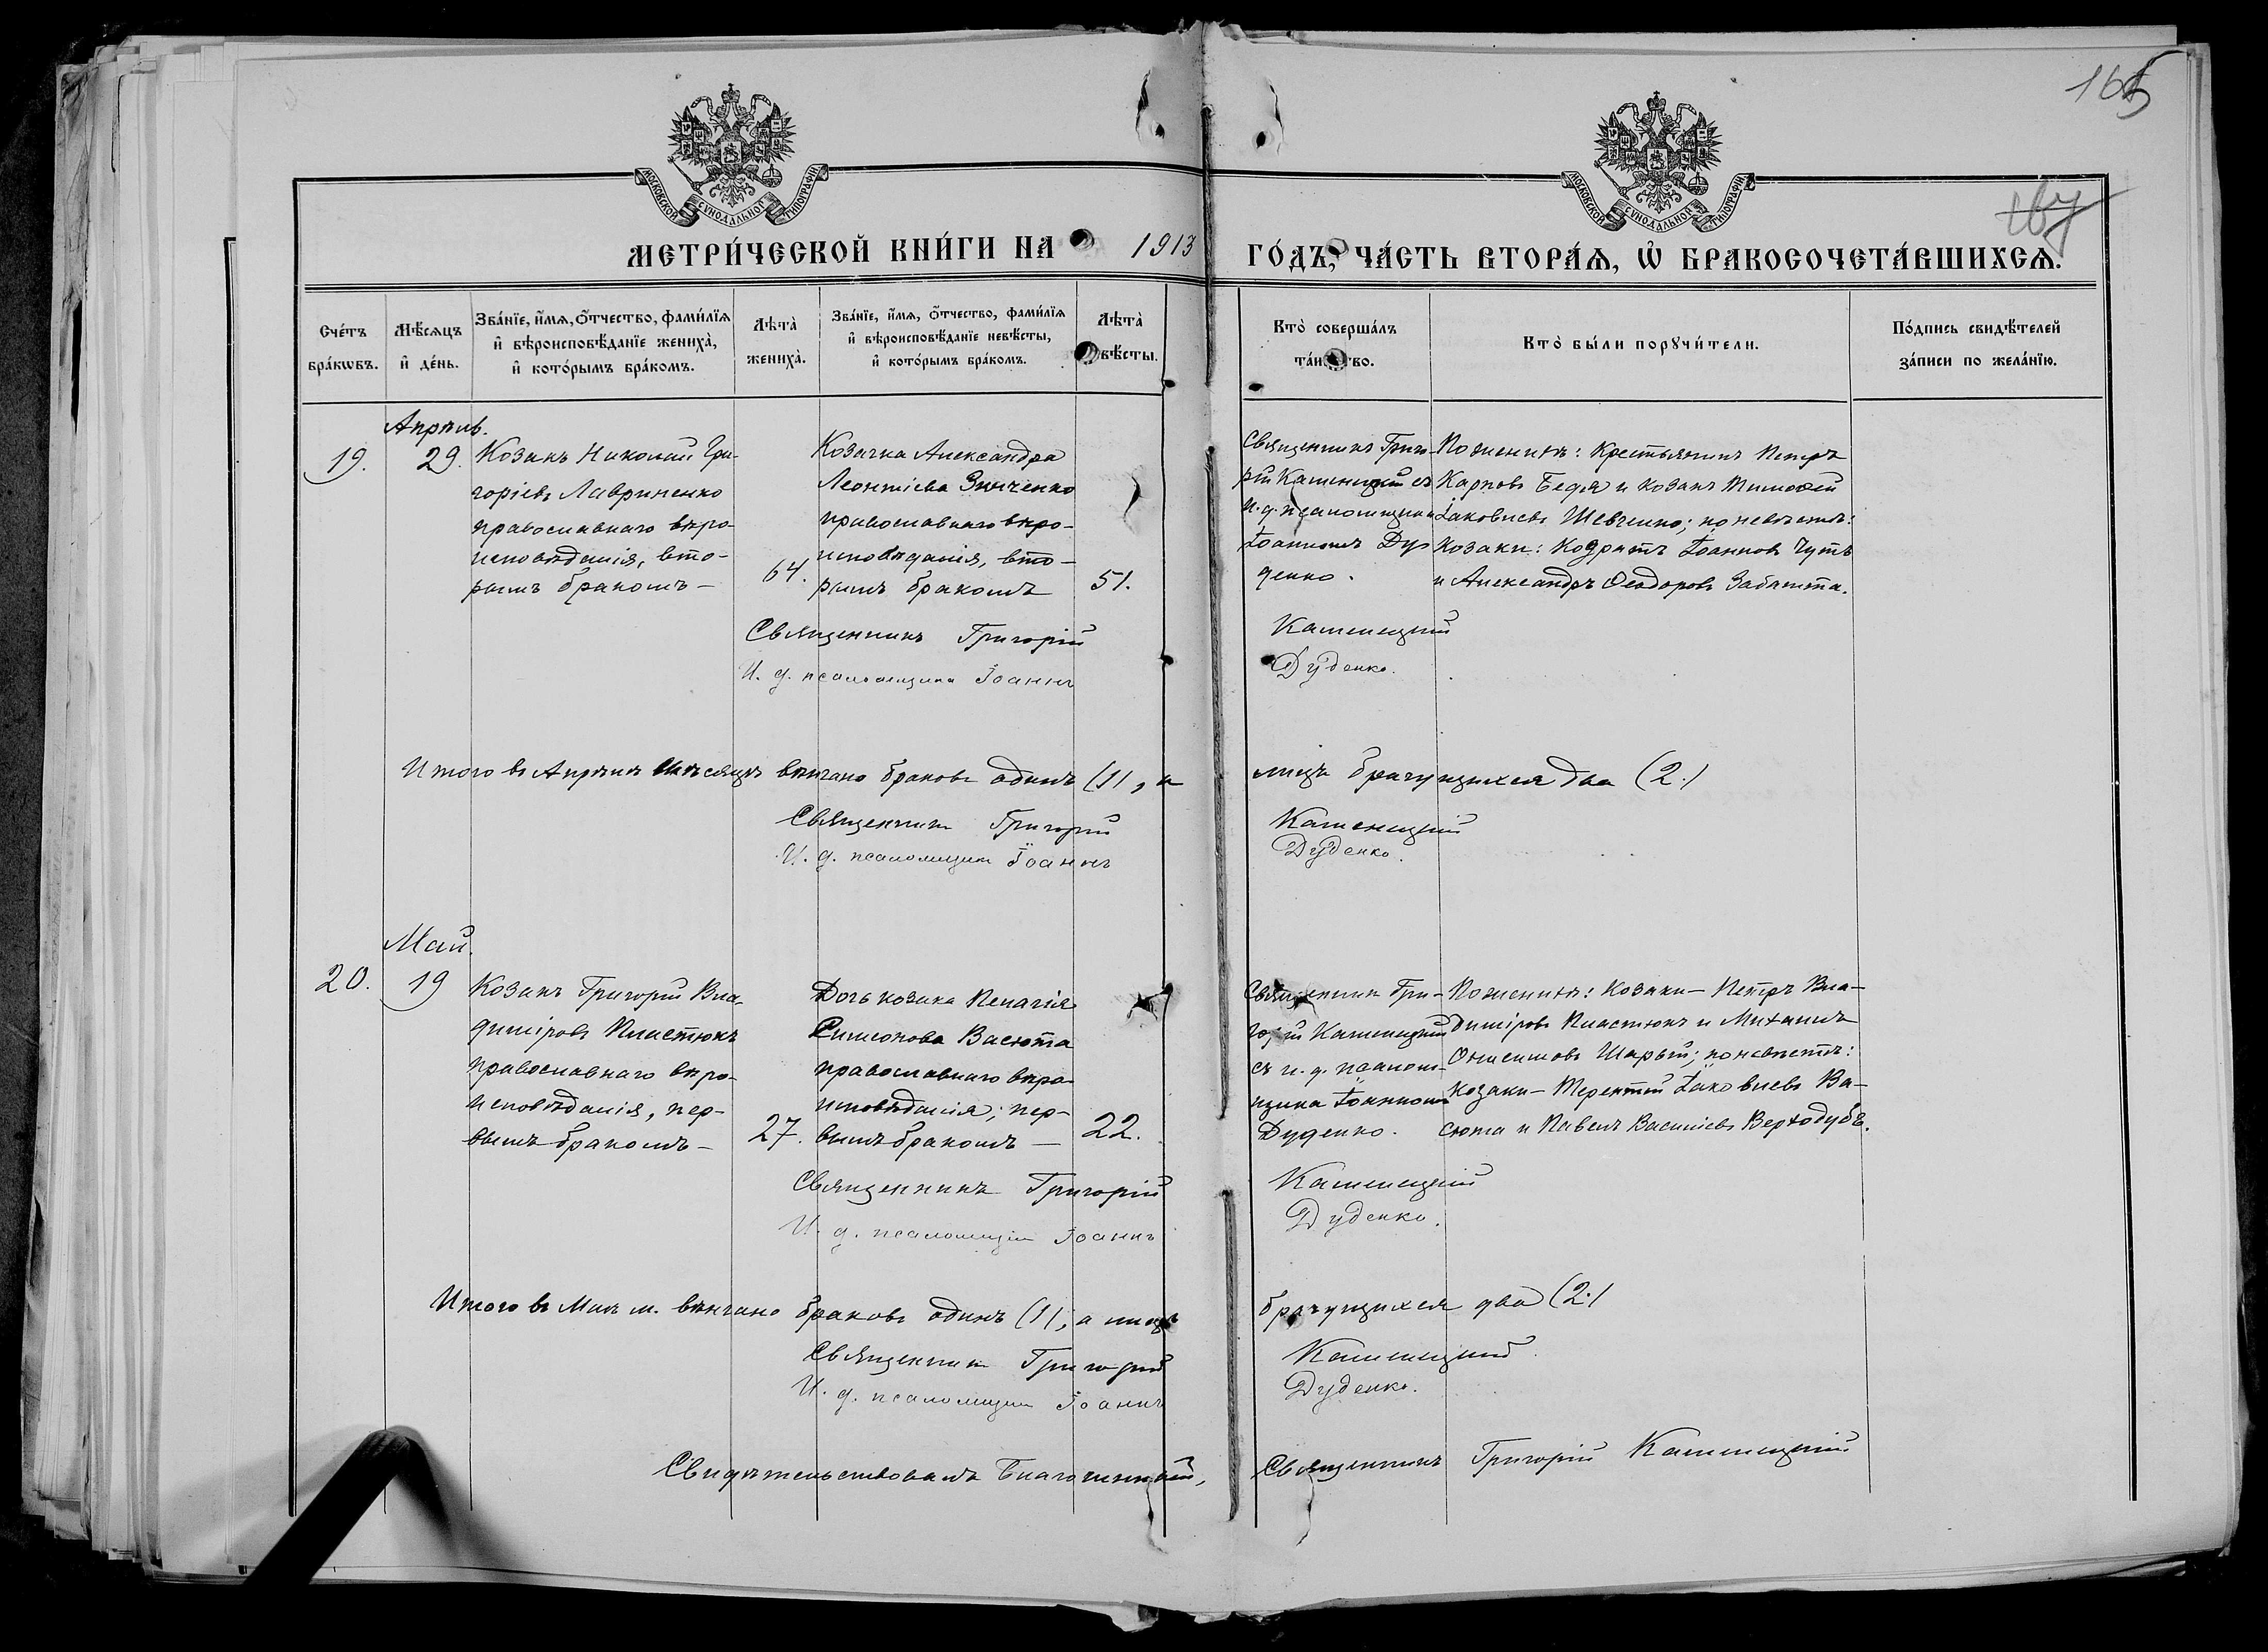 165
МОСКОВСКОЙ СѴНОДАЛЬНОЙ ТИПОГРАФІИ
МОСКОВСКОЙ СѴНОДАЛЬНОЙ ТИПОГРАФІИ
МЕТРИ́ЧЕСКОЙ КНИ́ГИ НА 1913 ГО́ДЪ, ЧА́СТЬ ВТОРА́Ѧ, Ѡ҆ БРАКОСОЧЕТА́ВШИХСѦ.
Сче́тъ
бра́кѡвъ.
Мѣ́сѧцъ
и҆ де́нь.
Зва́нїе, и҆́мѧ, ѻ҆́тчество, фами́лїѧ
и҆ вѣроисповѣ́данїе жениха̀,
и҆ кото́рымъ бра́комъ.
Лѣта̀
жениха̀.
Зва́нїе, и҆́мѧ, ѻ҆́тчество, фами́лїѧ
и҆ вѣроисповѣ́данїе невѣ́сты,
и҆ кото́рымъ бра́комъ.
Лѣта̀
вѣ́сты.
Кто̀ соверша́лъ
та́и во.
Кто̀ бы́ли порꙋчи́тели.
По́дпись свидѣ́телей
за́писи по жела́нїю.
Апрѣль.
19.
29.
Козакъ Николай Гри-
горіевъ Лавриненко
православнаго вѣро-
исповѣданія, вто-
рымъ бракомъ –
64.
Козачка Александра
Леонтіева Зинченко
православнаго вѣро-
исповѣданія, вто-
рымъ бракомъ
51.
Священникъ Григо-
рій Каменецкій съ
и. д. псаломщика
Іоанномъ Ду-
денко.
По женихѣ: крестьянинъ Петръ
Карповъ Бедя и козакъ Тимофей
Іаковлевъ Шевченко; по невѣстѣ:
Козаки: Кодратъ Іоанновъ Чутъ
и Александръ Ѳеодоровъ Забашта.
Священникъ Григорій Каменецкій
И. д. псаломщика Іоаннъ Дуденко.
Итого въ Апрѣлѣ мѣсяцѣ вѣнчано браковъ одинъ (1), а лицъ брачущихся два (2.)
Священникъ Григорій Каменецкій
И. д. псаломщика Іоаннъ Дуденко.
Май.
20.
19
Козакъ Григорій Вла-
диміровъ Пластюкъ
православнаго вѣро-
исповѣданія, пер-
вымъ бракомъ –
27.
Дочь козака Пелагія
Симонова Васюта
православнаго вѣро-
исповѣданія; пер-
вымъ бракомъ –
22.
Священникъ Гри-
горій Каменецкій
съ и. д. псалом-
щика Іоанномъ
Дуденко.
По женихѣ: Козаки – Петръ Вла-
диміровъ Пластюкъ и Михаилъ
Онисимовъ Шарый; по невѣстѣ:
козаки – Терентій Іаковлевъ Ва-
сюта и Павелъ Василіевъ Верходубъ.
Священникъ Григорій Каменецкій
И. д. псаломщика Іоаннъ Дуденко.
Итого въ Маѣ м. вѣнчано браковъ одинъ (1), а лицъ брачущихся два (2.)
Священникъ Григорій Каменецкій
И. д. псаломщика Іоаннъ Дуденко.
Свидѣтельствовалъ Благочинный, Священникъ Григорій Каменецкій